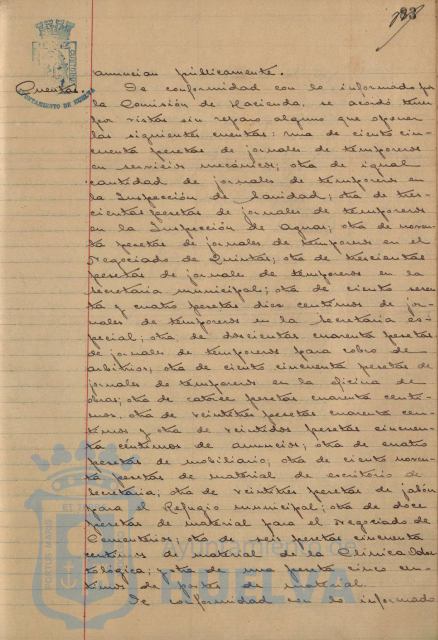 83
anuncian públicamente.
Cuentas. De conformidad con lo informado por
la Comisión de Hacienda, se acordó tener
por vistas sin reparo alguno que oponer
las siguientes cuentas: una de ciento cin-
cuenta pesetas de jornales de temporeros
en servicios mecánicos; otra de igual
cantidad de jornales de temporeros en
la Inspección de Sanidad; otra de tres-
cientas pesetas de jornales de temporeros
en la Inspección de Aguas; otra de noven-
ta pesetas de jornales de temporeros en el
Negociado de Quintas; otra de trescientas
pesetas de jornales de temporeros en la
Secretaria municipal; otra de ciento seten-
ta y cuatro pesetas diez centimos de jor-
nales de temporeros en la Secretaria es-
pecial; otra, de doscientas cuarenta pesetas
de jornales de temporeros para cobro de
arbitrios; otra de ciento cincuenta pesetas de
jornales de temporeros en la oficina de
obras; otra de catorce pesetas cuarenta centi-
mos, otra de veintitres pesetas cuarenta cen-
timos y otra de veintidos pesetas cincuenta
céntimos de anuncios; otra de cuatro
pesetas de mobiliario; otra de ciento noven-
ta pesetas de material de escritorio de
Secretaria; otra de veintitres pesetas de jabón
para el Refugio municipal; otra de doce
pesetas de material para el Negociado de
Cementerios; otra de seis pesetas cincuenta
centimos de material de la Clinica Odon-
tológica; y otra de una peseta cinco cen-
timos de portes de material.
De conformidad con lo informado
AYUNTAMIENTO DE HUELVA
Ayuntamiento de
HUELVA